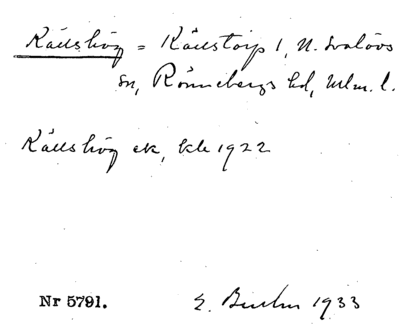 Källshög = Källstorp 1, N. Svalövs
sn, Rönnebergs hd, Mlm. l.
Källshög ek, kbl 1922
Nr 5791.
E. 1933